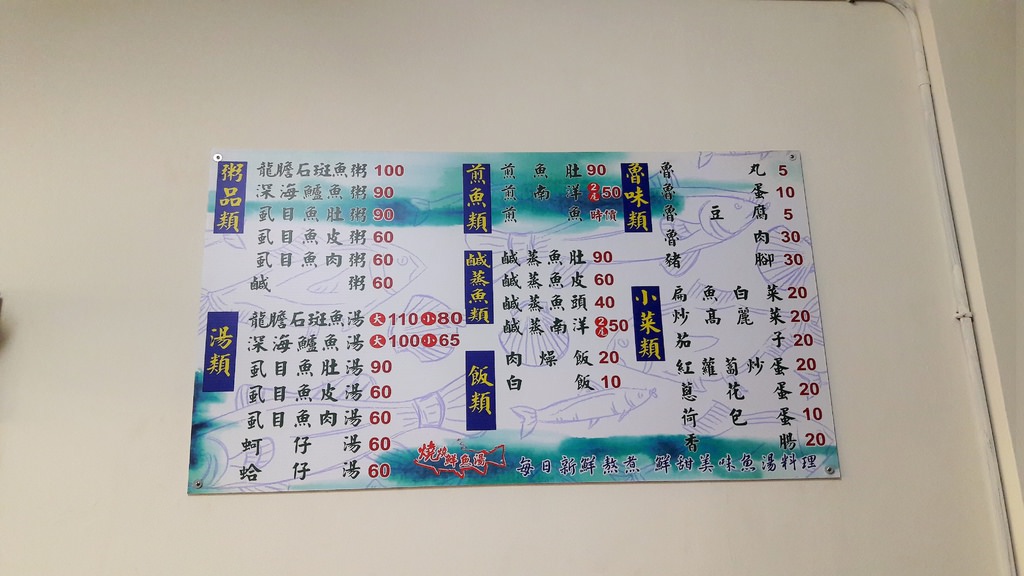 粥品類
龍膽石斑魚粥 100
深海鱸魚粥 90
虱目魚肚粥 90
虱目魚皮粥 60
虱目魚肉粥 60
鹹粥 60
湯類
龍膽石斑魚湯 大110 小80
深海鱸魚湯 大100 小65
虱目魚肚湯 90
虱目魚皮湯 60
虱目魚肉湯 60
蚵仔湯 60
蛤仔湯 60
煎魚類
煎魚肚 90
煎南洋 2尾50
煎魚 時價
鹹蒸魚類
鹹蒸魚肚 90
鹹蒸魚皮 60
鹹蒸魚頭 40
鹹蒸南洋 2尾50
飯類
肉燥飯 20
白飯 10
魯味類
魯丸 5
魯蛋 10
魯豆腐 5
魯肉 30
豬腳 30
小菜類
扁魚白菜 20
炒高麗菜 20
茄子 20
紅蘿蔔炒蛋 20
蔥花蛋 20
荷包蛋 10
香腸 20
鮮魚湯
每日新鮮熬煮 鮮甜美味魚湯料理